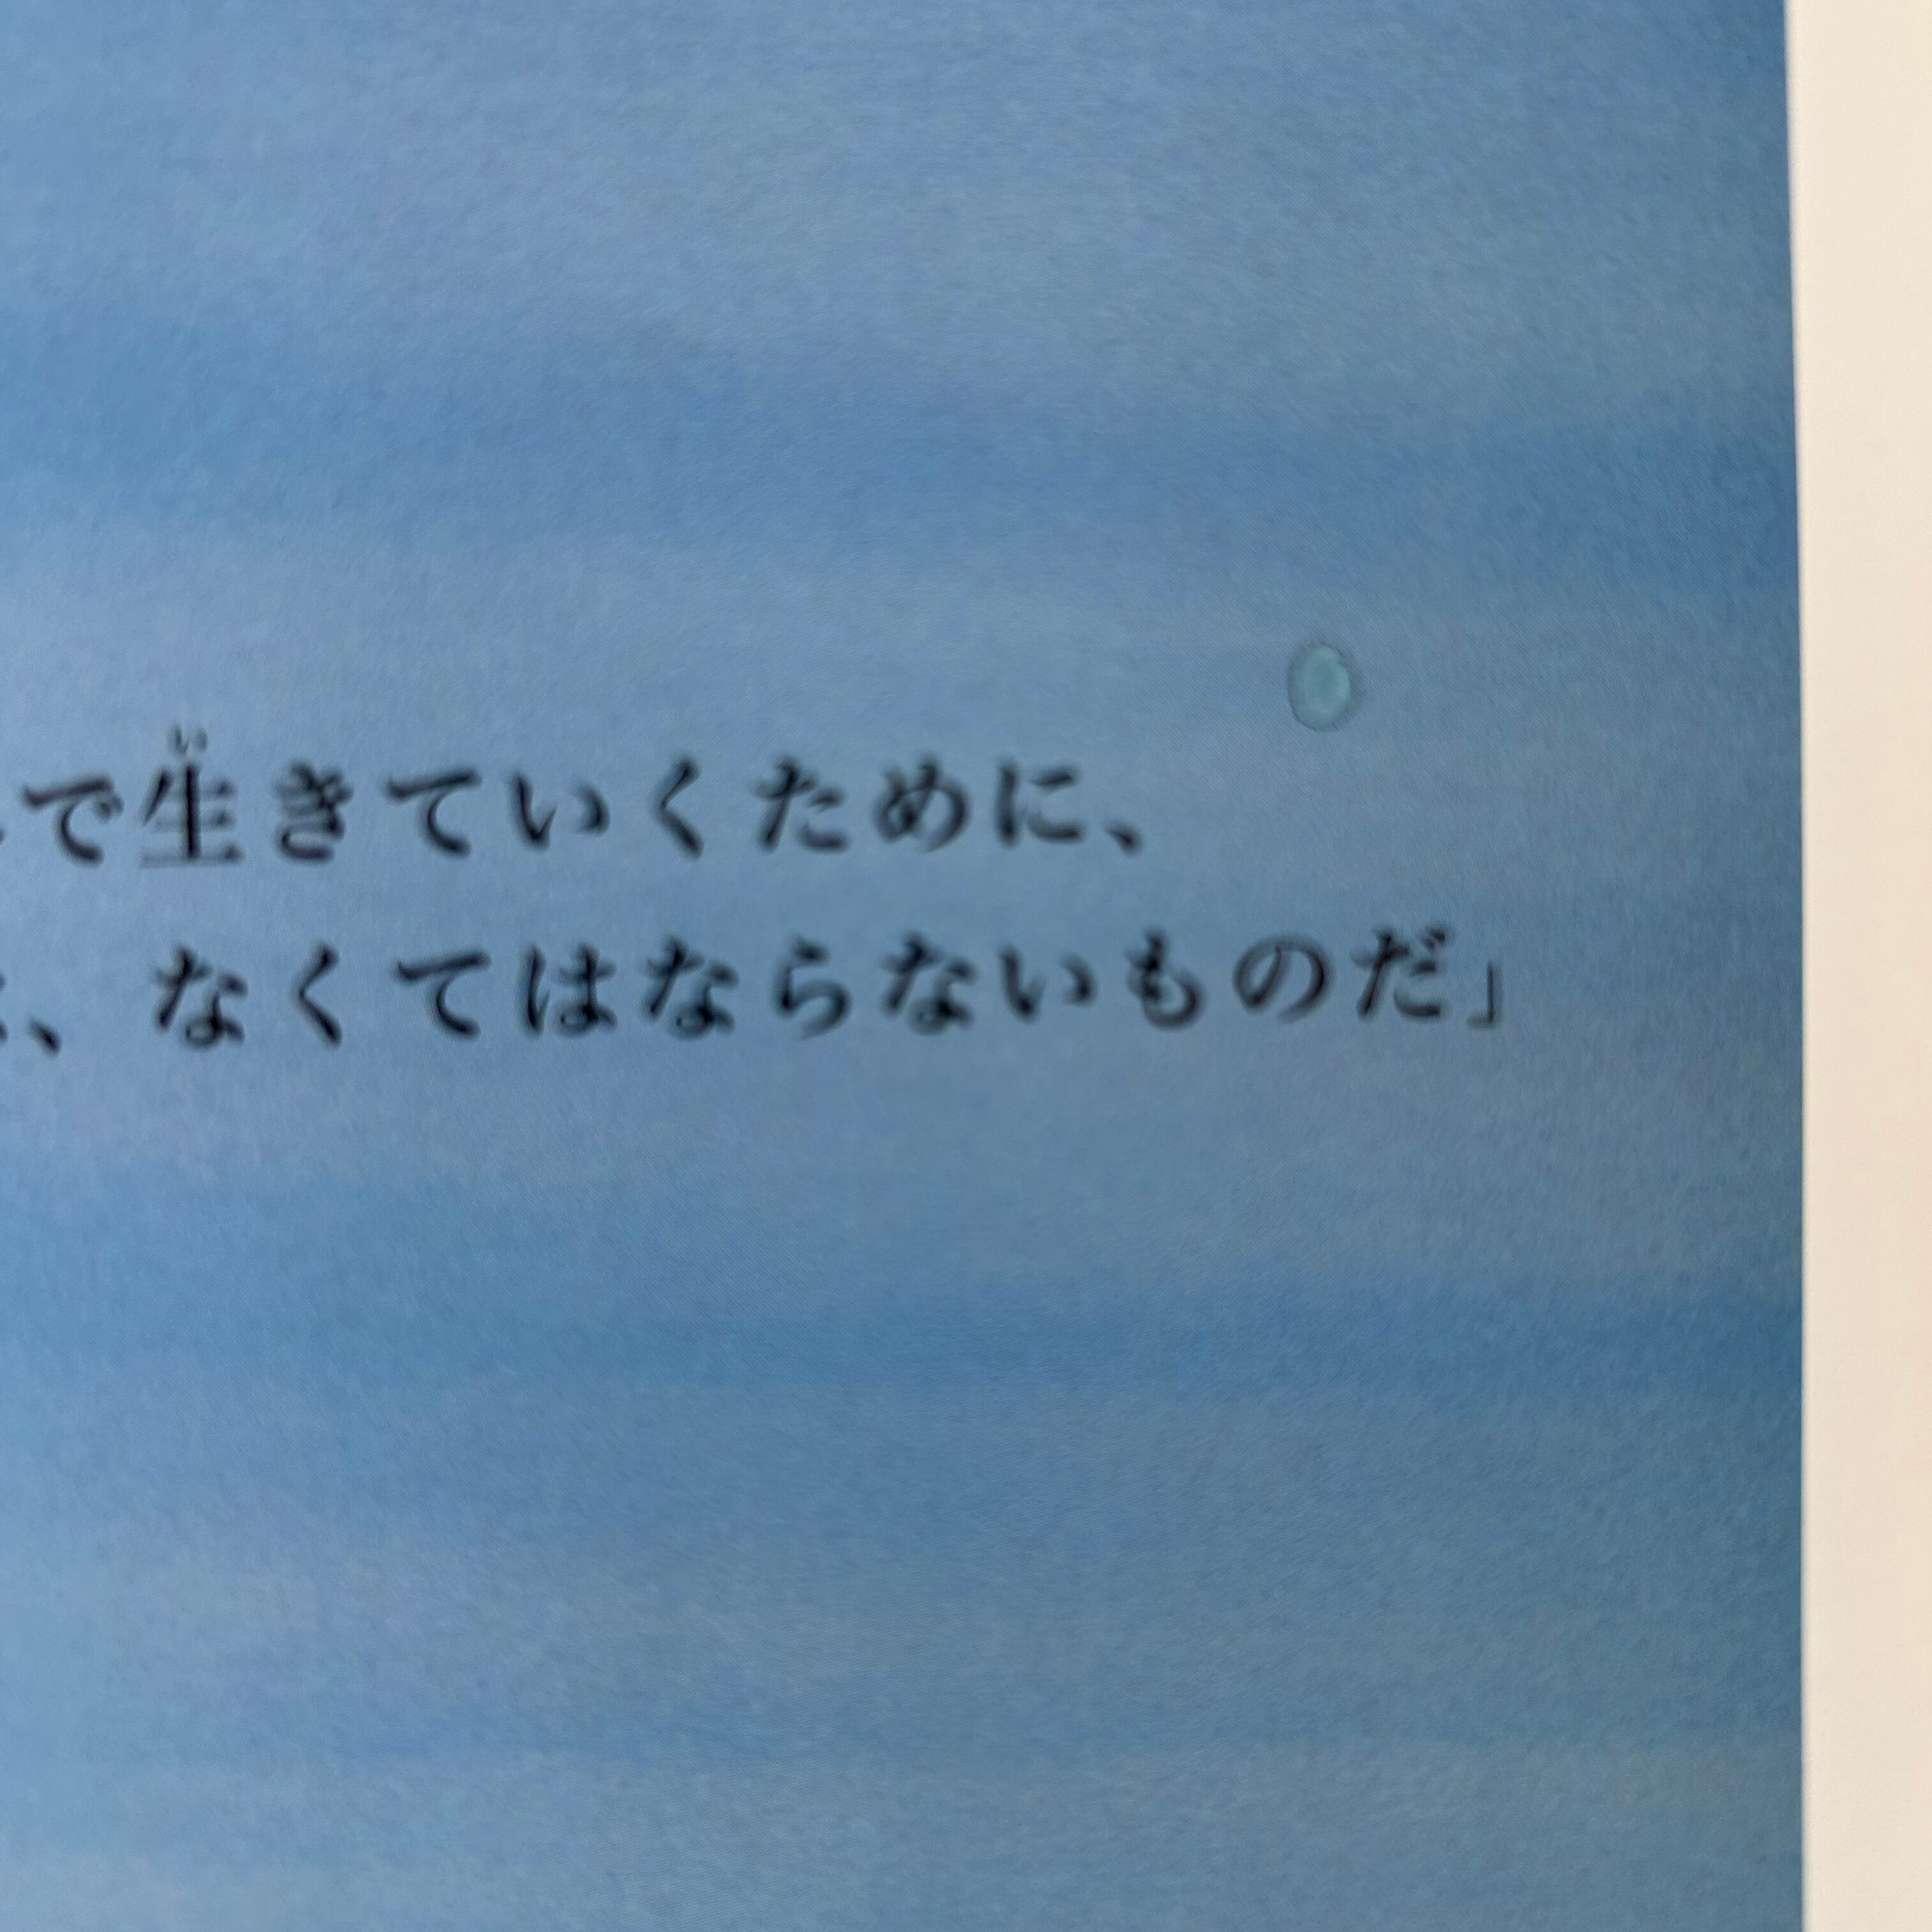 で生きていくために、
、なくてはならないものだ」